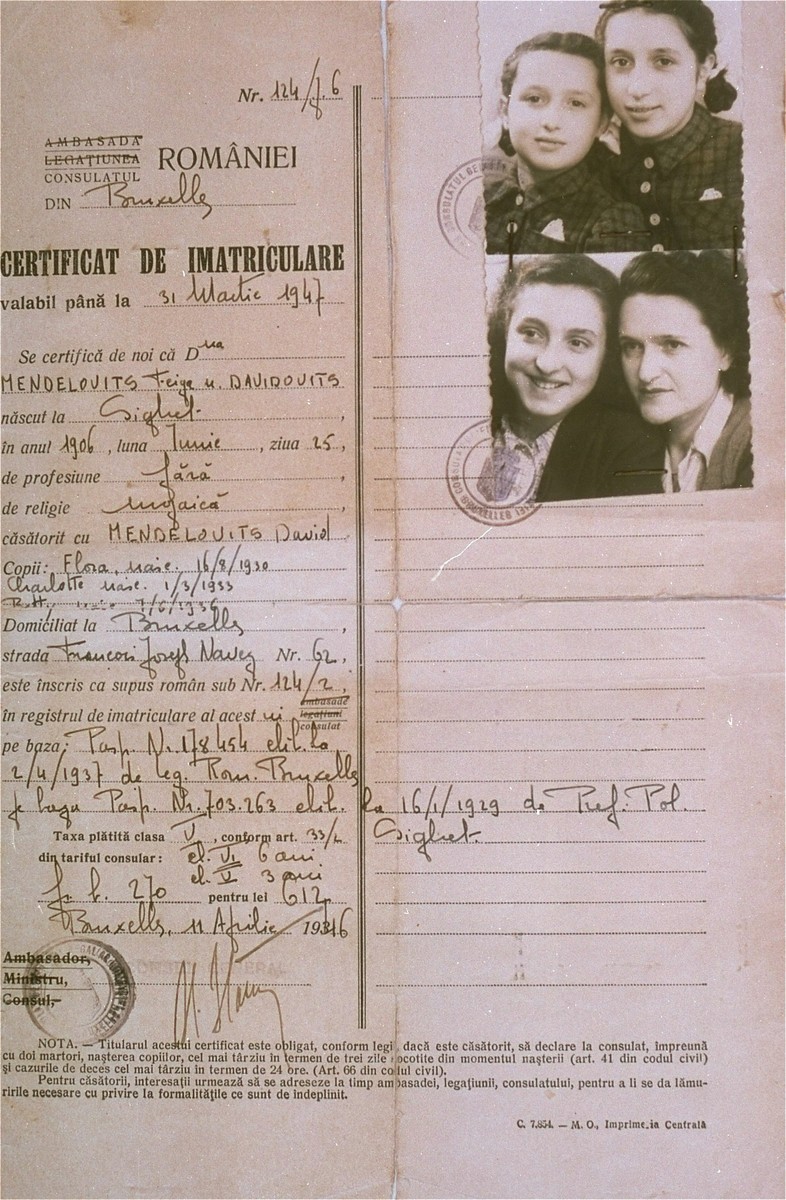 Nr. 124/J.6
AMBASADA
LEGAȚIUNEA
CONSULATUL
ROMÂNIEI
DIN Bruxelles
CERTIFICAT DE IMATRICULARE
valabil până la 31 Martie 1947
Se certifică de noi că Dna
MENDELOVITS Feige n. DAVIDOVITS
născut la Sighet,
în anul 1906, luna Iunie, ziua 25,
de profesiune fără
de religie mozaică
căsătorit cu MENDELOVITS David
Copii: Flora, nasc. 16/8/1930
Charlotte nasc. 1/3/1933
Domiciliat la Bruxelles,
strada François Josef Navez Nr. 62,
este înscris ca supus român sub Nr. 124/2,
în registrul de imatriculare al acestui
ambasade
legațiuni
consulat
pe baza: Pasp. Nr. 178454 elib. la
2/4/1937 de Leg. Rom. Bruxelles
pe baza Pasp. Nr. 703.263 elib. la 16/1/1929 de Pref. Pol.
Sighet.
Taxa plătită clasa V, conform art. 33/2
din tariful consular: cl. VI 6 ani
cl. V 3 ani
fr. b. 270 pentru lei 612
Bruxelles, 11 Aprilie 1946
Ambasador,
Ministru,
Consul,
NOTA. — Titularul acestui certificat este obligat, conform legi, dacă este căsătorit, să declare la consulat, împreună
cu doi martori, nașterea copiilor, cel mai târziu în termen de trei zile socotite din momentul nașterii (art. 41 din codul civil)
și cazurile de deces cel mai târziu în termen de 24 ore. (Art. 66 din codul civil).
Pentru căsătorii, interesații urmează să se adreseze la timp ambasadei, legațiunii, consulatului, pentru a li se da lămu-
ririle necesare cu privire la formalitățile ce sunt de îndeplinit.
C. 7.854. — M. O., Imprimeria Centrală